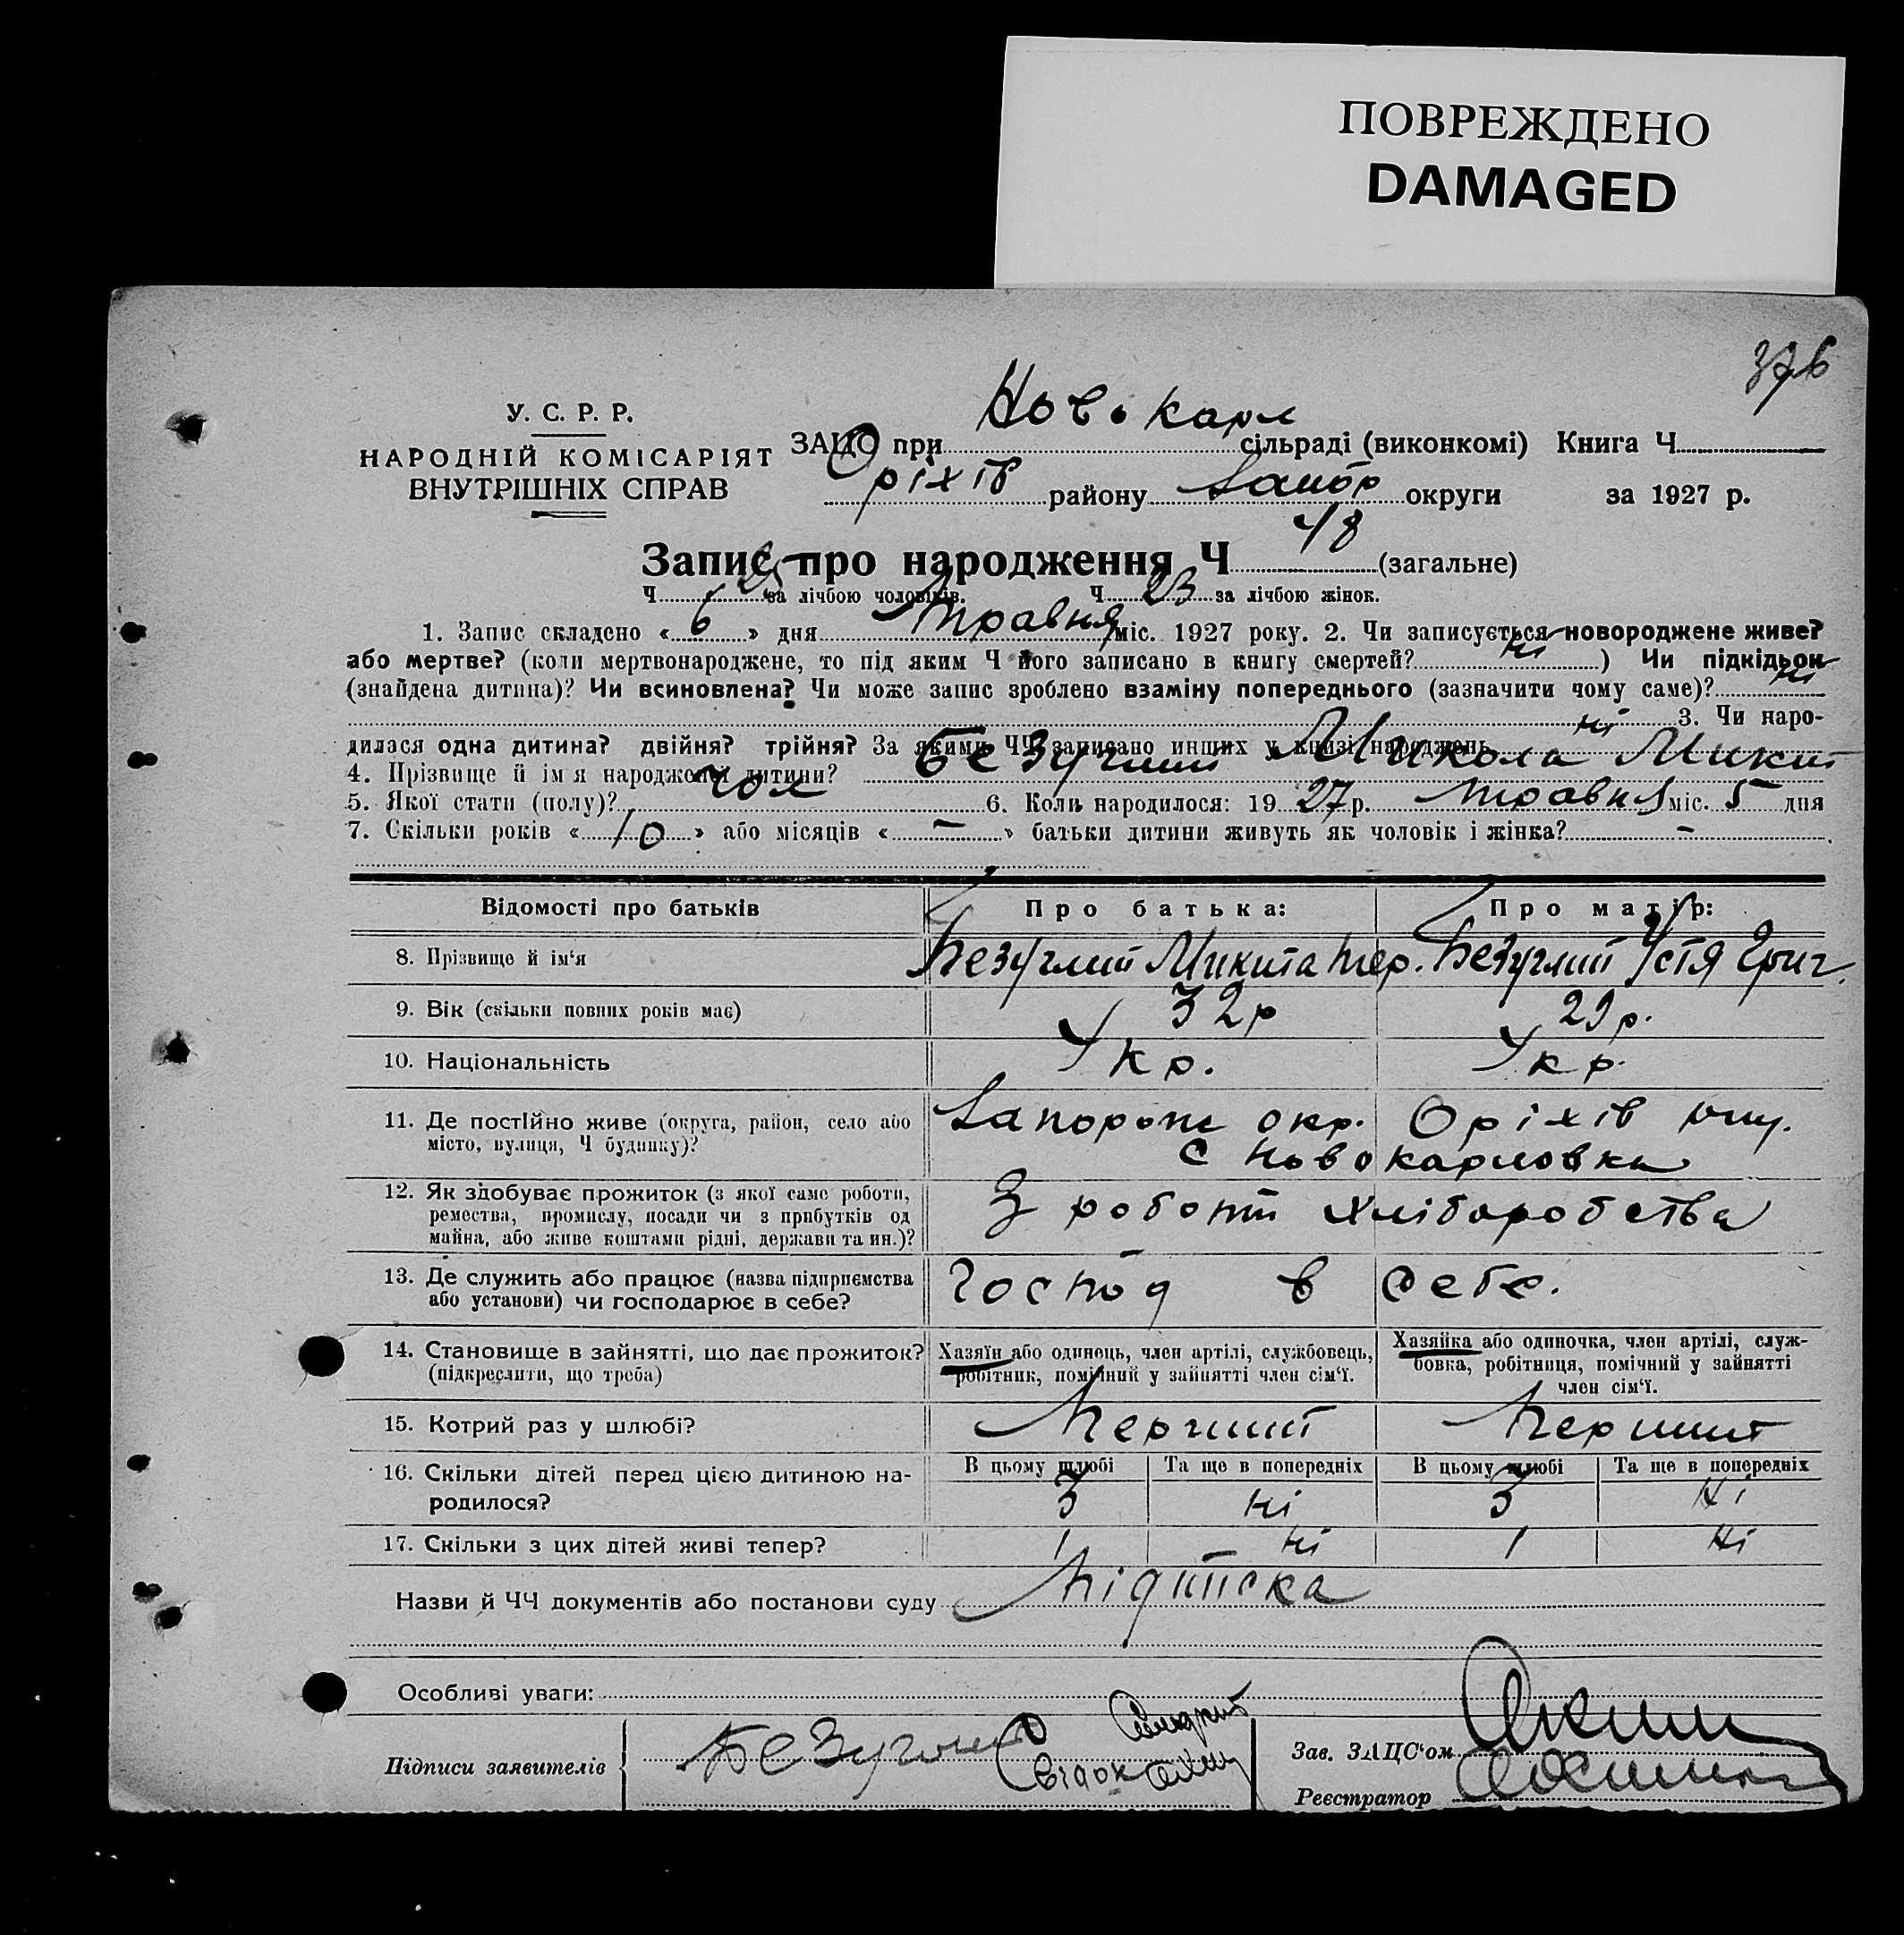 ПОВРЕЖДЕНО
DAMAGED
376
У. С. Р. Р.
НАРОДНІЙ КОМІСАРІЯТ
ВНУТРІШНІХ СПРАВ
ЗАЦС при Новокарл сільраді (виконкомі) Книга Ч.
Оріхів району Запор округи за 1927 р.
Запис про народження Ч 48 (загальне)
Ч 25 за лічбою чоловіків. Ч 23 за лічбою жінок.
1. Запис складено « 6 » дня Травня міс. 1927 року. 2. Чи записується новороджене живе?
або мертве? (коли мертвонароджене, то під яким Ч його записано в книгу смертей? ні ) Чи підкідьок
(знайдена дитина)? Чи всиновлена? Чи може запис зроблено взаміну попереднього (зазначити чому саме)? ні
ні 3. Чи наро-
дилася одна дитина? двійня? трійня? За якими ЧЧ записано инших у книзі народжень ні
4. Прізвище й ім'я народженої дитини? Безуглий Микола Микит
5. Якої стати (полу)? чол 6. Коли народилося: 19 27 р. травня міс. 5 дня
7. Скільки років « 10 » або місяців « — » батьки дитини живуть як чоловік і жінка? -
Відомості про батьків Про батька: Про матір:
8. Прізвище й ім'я Безуглий Микита Безуглий Устя Григ.
9. Вік (скільки повних років має) 32 р 29 р.
10. Національність Укр. Укр.
11. Де постійно живе (округа, район, село або Запорож окр. Оріхів
місто, вулиця, Ч будинку)? с Новокарловка
12. Як здобуває прожиток (з якої саме роботи,
ремества, промислу, посади чи з прибутків од З роботи хліборобства
майна, або живе коштами рідні, держави та ин.)?
13. Де служить або працює (назва підприємства Господ в себе.
або установи) чи господарює в себе?
14. Становище в зайнятті, що дає прожиток? Хазяїн або одинець, член артілі, службовець, Хазяйка або одиночка, член артілі, служ-
(підкреслити, що треба) робітник, помічний у зайнятті член сім'ї. бовка, робітниця, помічний у зайнятті
член сім'ї.
15. Котрий раз у шлюбі? Перший Перший
16. Скільки дітей перед цією дитиною на- В цьому шлюбі Та ще в попередніх В цьому шлюбі Та ще в попередніх
родилося? 3 ні 3 ні
17. Скільки з цих дітей живі тепер? 1 ні 1 ні
Назви й ЧЧ документів або постанови суду Підпіска
Особливі уваги:
Підписи заявителів Безуглий
Зав. ЗАЦС'ом
Реєстратор